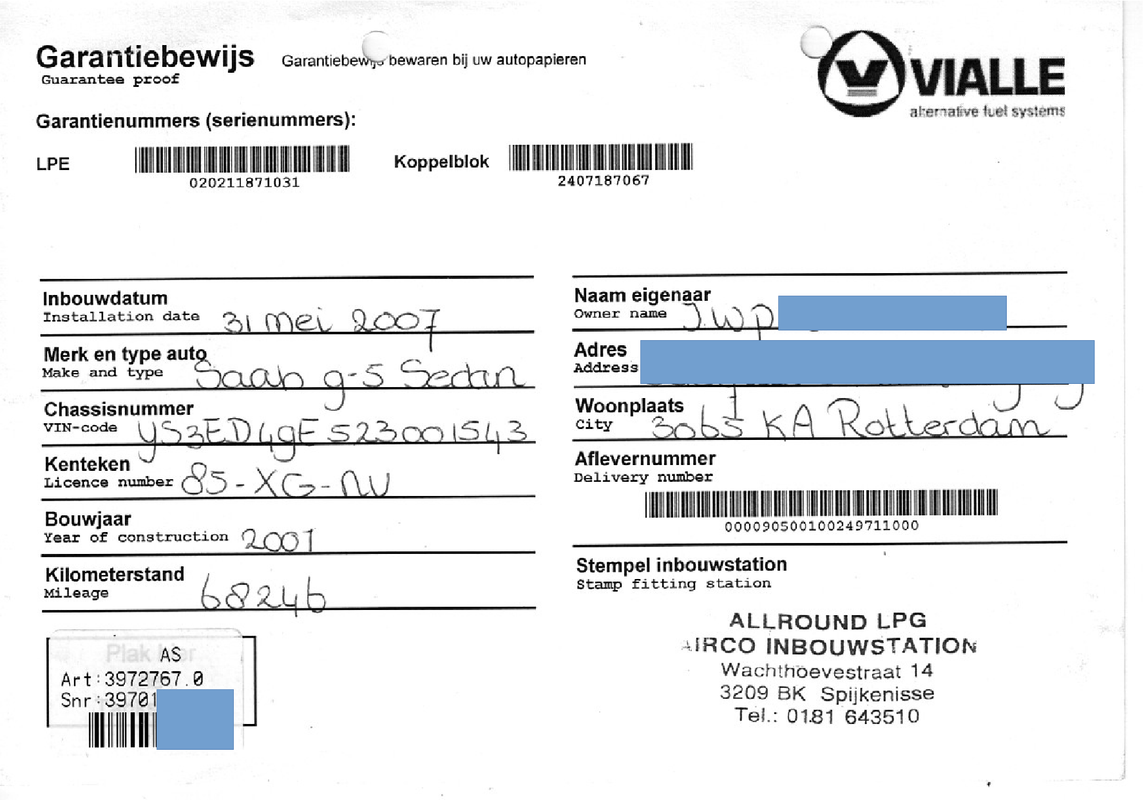 Garantiebewijs Garantiebewijs bewaren bij uw autopapieren
Guarantee proof
VIALLE
alternative fuel systems
Garantienummers (serienummers):
LPE 020211871031
Koppelblok 2407187067
Inbouwdatum
Installation date 31 mei 2007
Merk en type auto
Make and type Saab 9-5 Sedan
Chassisnummer
VIN-code YS3ED49E523001543
Kenteken
Licence number 85-XG-NU
Bouwjaar
Year of construction 2001
Kilometerstand
Mileage 68246
Plak hier
AS
Art:3972767.0
Snr:39701
Naam eigenaar
Owner name J.W.P
Adres
Address
Woonplaats
City 3065 KA Rotterdam
Aflevernummer
Delivery number
00009050010024971​1000
Stempel inbouwstation
Stamp fitting station
ALLROUND LPG
AIRCO INBOUWSTATION
Wachthoevestraat 14
3209 BK Spijkenisse
Tel.: 0181 643510